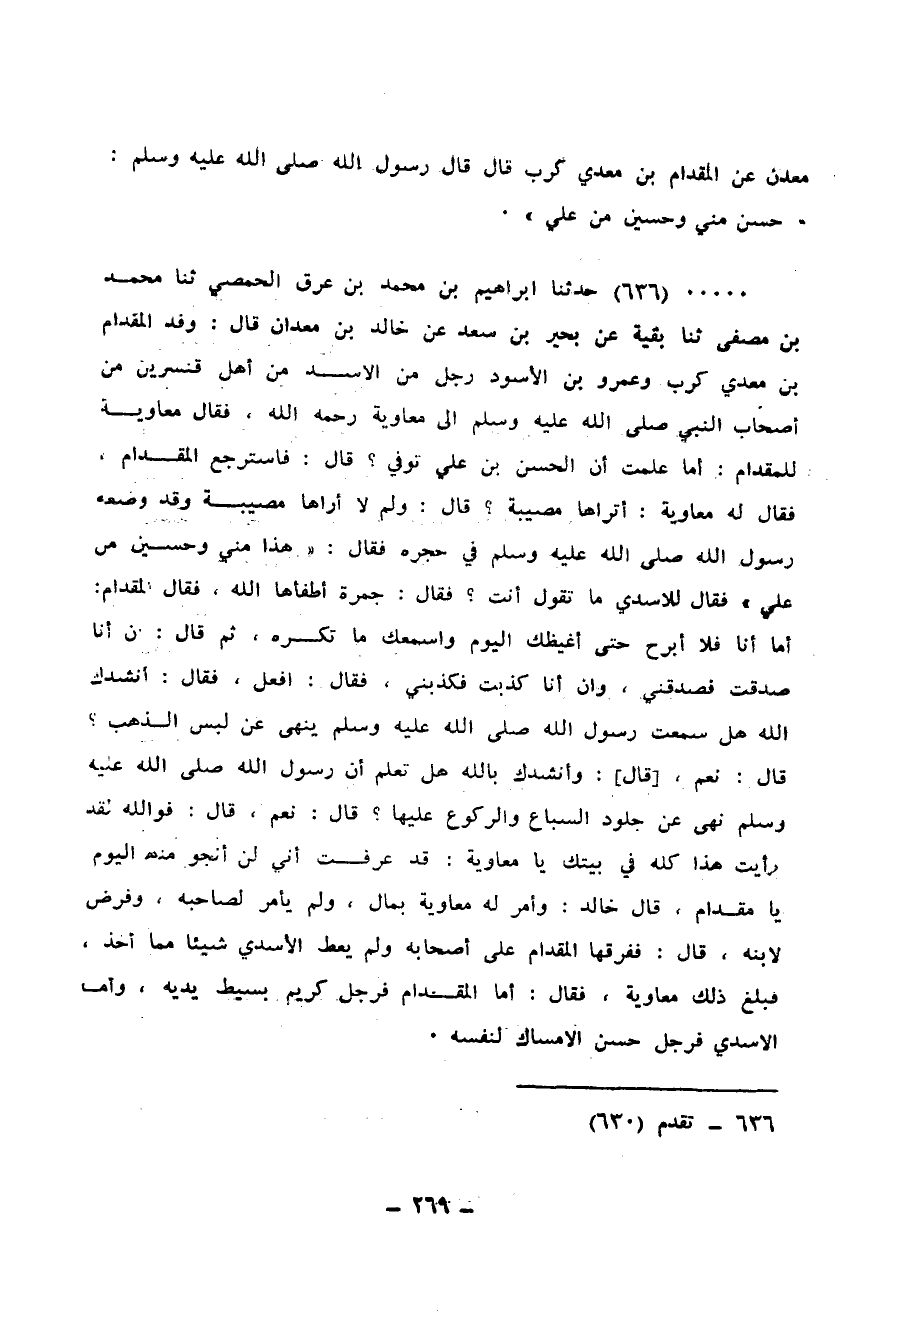 معدن عن المقدام بن معدي كرب قال قال رسول الله صلى الله عليه وسلم :
• حسن مني وحسين من علي » •
٠٠٠٠٠ (٦٣٦) حدثنا ابراهيم بن محمد بن عرق الحمصي ثنا محمد
بن مصفى ثنا بقية عن بحير بن سعد عن خالد بن معدان قال : وفد المقدام
بن معدي كرب وعمرو بن الأسود رجل من الاسد من أهل قنسرين من
أصحاب النبي صلى الله عليه وسلم الى معاوية رحمه الله ، فقال معاوية
للمقدام : أما علمت أن الحسن بن علي توفي ؟ قال : فاسترجع المقدام ،
فقال له معاوية : أتراها مصيبة ؟ قال : ولم لا أراها مصيبة وقد وضعه
رسول الله صلى الله عليه وسلم في حجره فقال : « هذا مني وحسين من
علي » فقال للاسدي ما تقول أنت ؟ فقال : جمرة أطفأها الله ، فقال المقدام:
أما أنا فلا أبرح حتى أغيظك اليوم واسمعك ما تكره ، ثم قال : ن أنا
صدقت فصدقني ، وان أنا كذبت فكذبني ، فقال : افعل ، فقال : أنشدك
الله هل سمعت رسول الله صلى الله عليه وسلم ينهى عن لبس الذهب ؟
قال : نعم ، [قال] : وأنشدك بالله هل تعلم أن رسول الله صلى الله عليه
وسلم نهى عن جلود السباع والركوع عليها ؟ قال : نعم ، قال : فوالله لقد
رأيت هذا كله في بيتك يا معاوية : قد عرفت أني لن أنجو منك اليوم
يا مقدام ، قال خالد : وأمر له معاوية بمال ، ولم يأمر لصاحبه ، وفرض
لابنه ، قال : ففرقها المقدام على أصحابه ولم يعط الأسدي شيئا مما أخذ ،
فبلغ ذلك معاوية ، فقال : أما المقدام فرجل كريم بسيط يديه ، وأما
الاسدي فرجل حسن الامساك لنفسه •
٦٣٦ – تقدم (٦٣٠)
– ٢٦٩ –